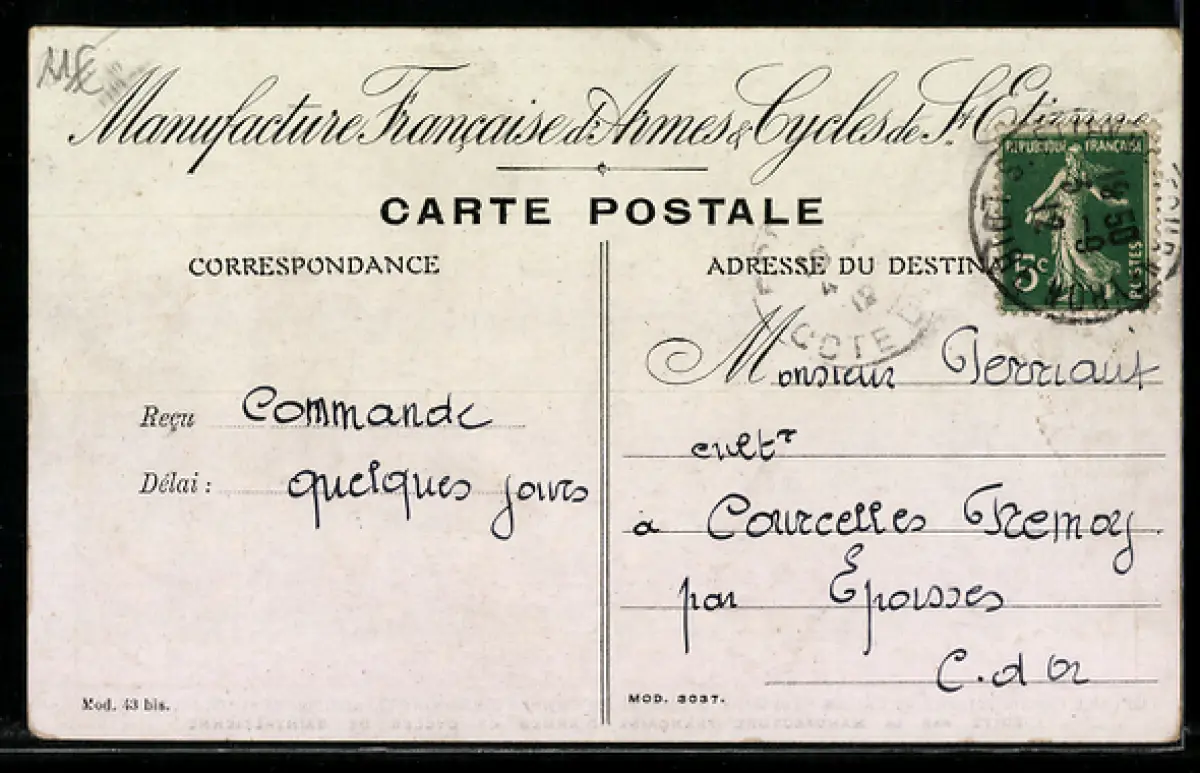 Manufacture Française d'Armes & Cycles de St Etienne
CARTE POSTALE
CORRESPONDANCE
ADRESSE DU DESTINA
REPUBLIQUE FRANÇAISE
5c
POSTES
COTE D
Monsieur Perriaut
Reçu Commande
cultr
Délai : quelques jours
à Courcelles Fremoy
par Epoisses
C. d Or
Mod. 43 bis.
MOD. 3037.